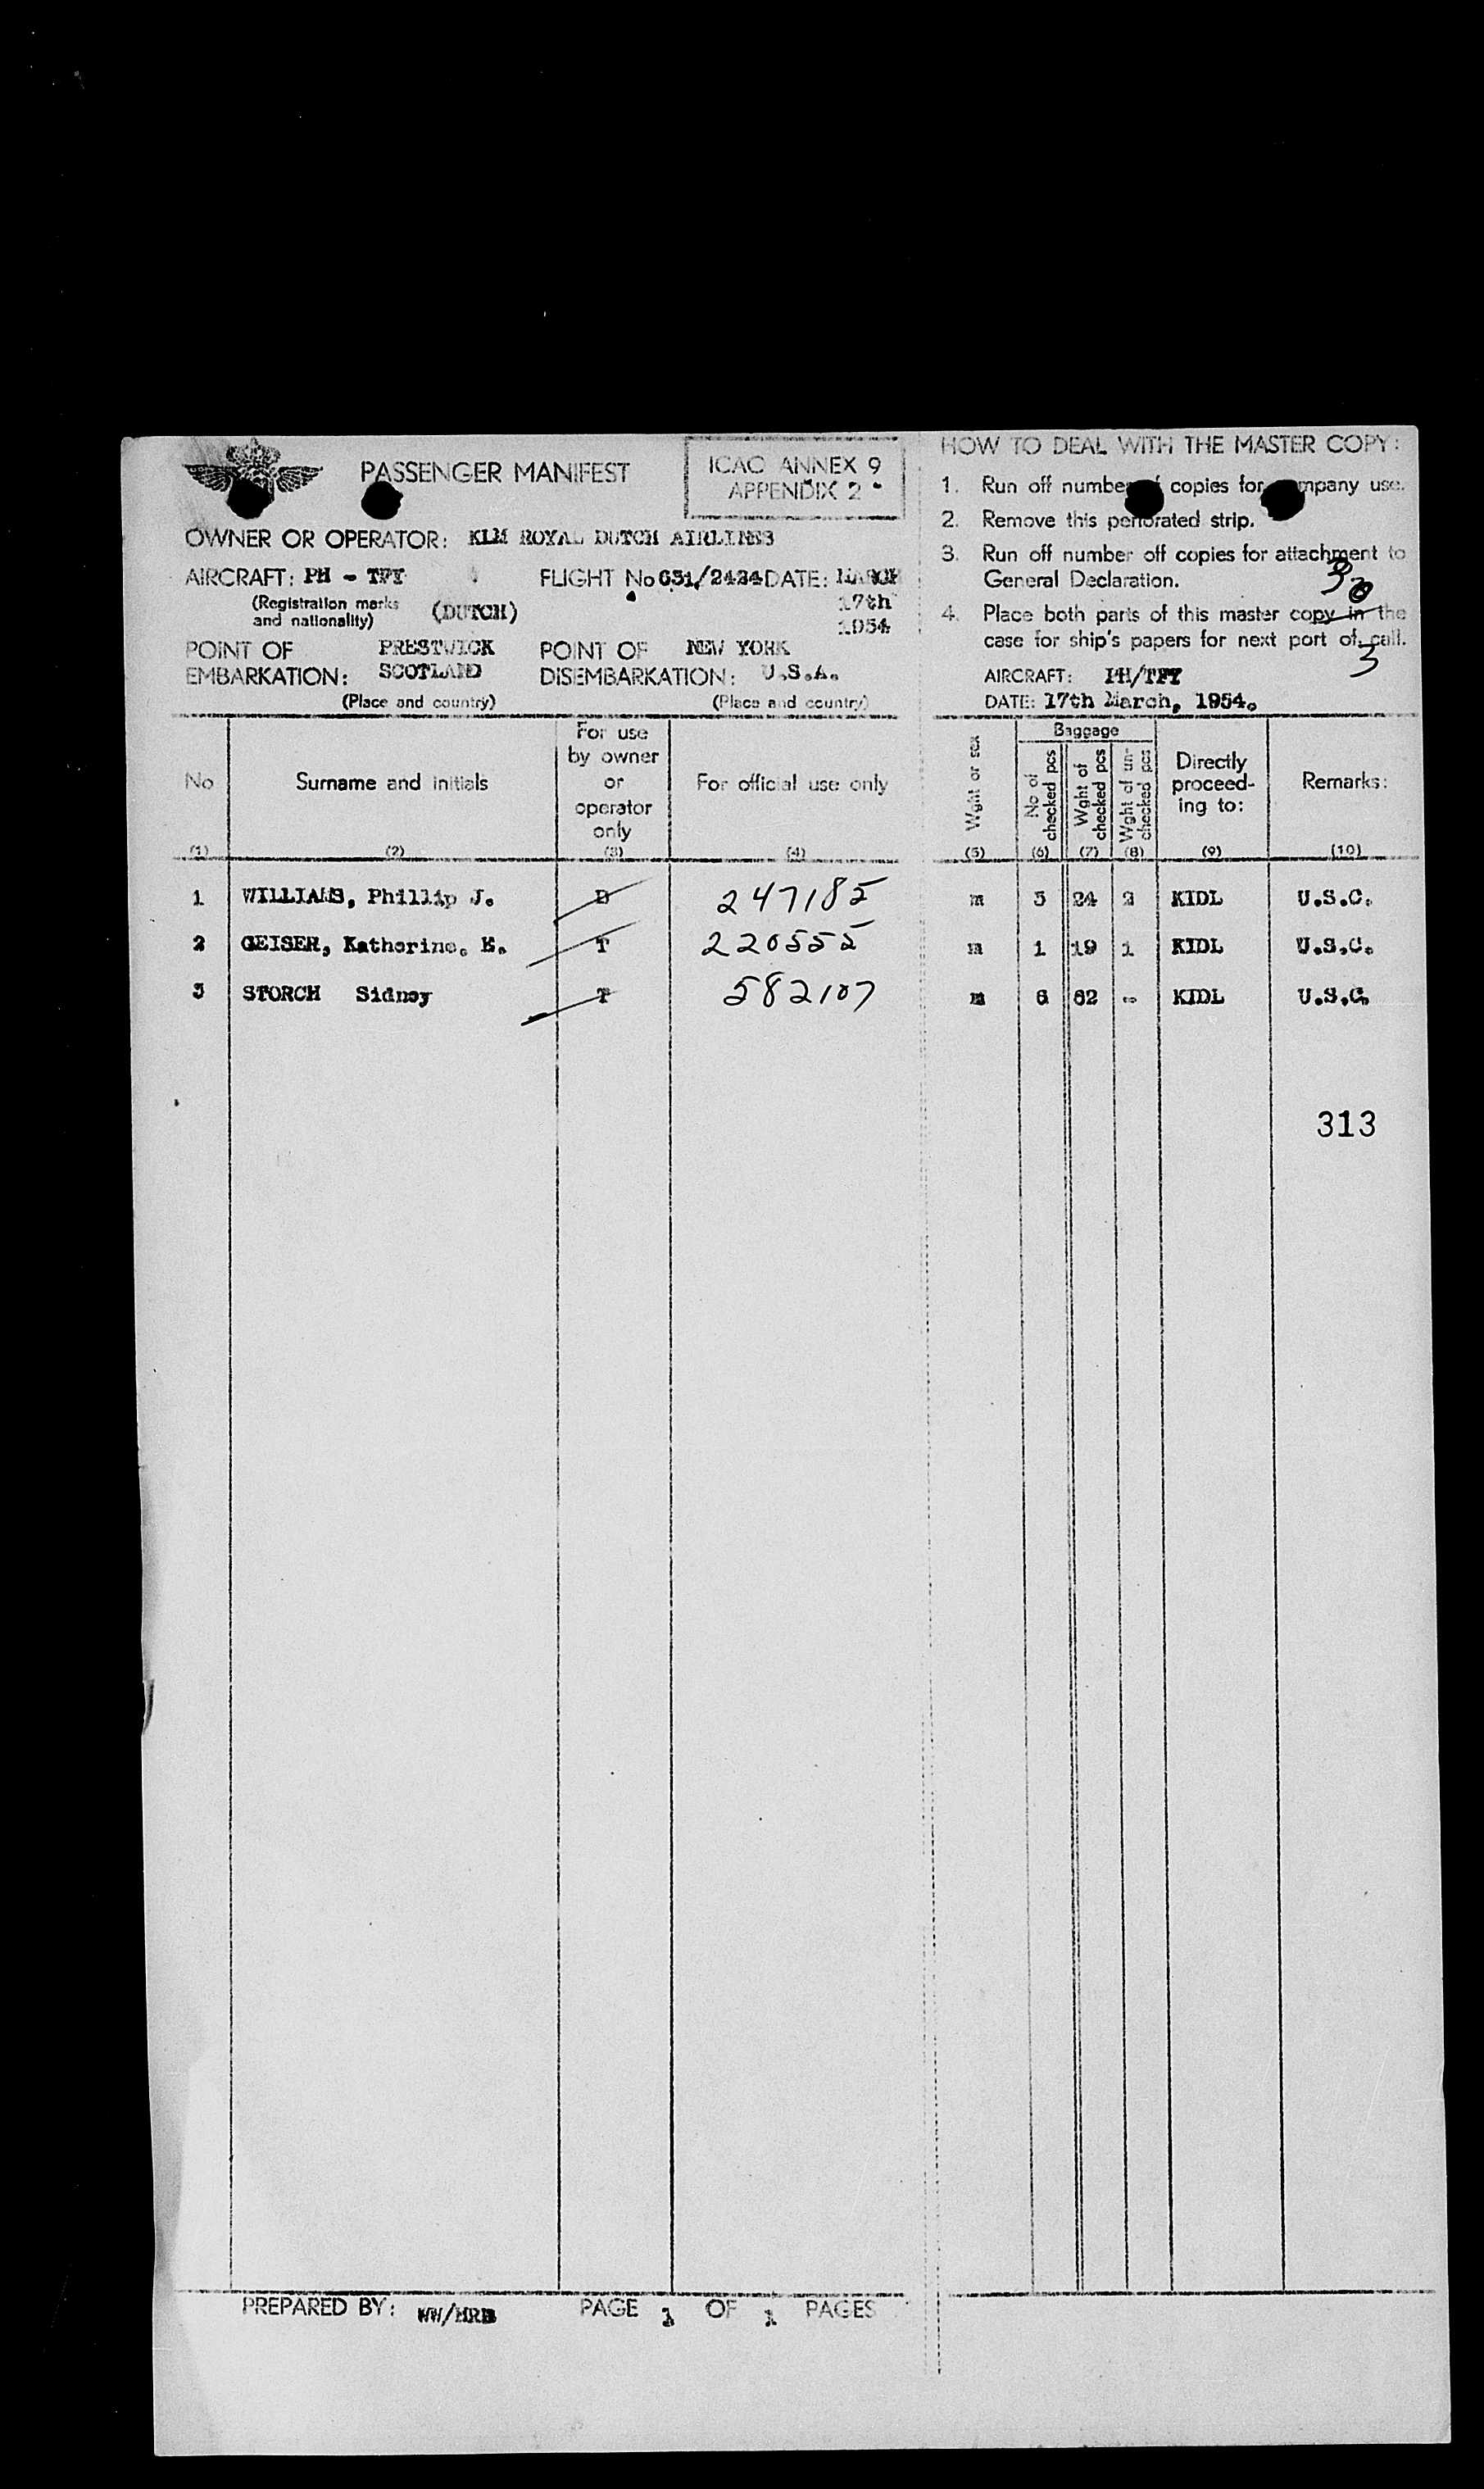 PASSENGER MANIFEST
ICAO ANNEX 9
APPENDIX 2
OWNER OR OPERATOR: KLM ROYAL DUTCH AIRLINES
AIRCRAFT: PH - TFY FLIGHT No 631/2424 DATE: MARCH
(Registration marks and nationality) (DUTCH) 17th
1954
POINT OF EMBARKATION: PRESTWICK SCOTLAND
(Place and country)
POINT OF DISEMBARKATION: NEW YORK U.S.A.
(Place and country)
HOW TO DEAL WITH THE MASTER COPY:
1. Run off number copies for use.
2. Remove this perforated strip.
3. Run off number off copies for attachment to
General Declaration.
4. Place both parts of this master copy in the
case for ship's papers for next port of call.
3
AIRCRAFT: PH/TFY
DATE: 17th March, 1954.
No (1)
Surname and initials (2)
For use by owner or operator only (3)
For official use only (4)
Wght or sex (5)
Baggage
No of checked pcs (6)
Wght of checked pcs (7)
Wght of un-checked pcs (8)
Directly proceed-ing to: (9)
Remarks: (10)
1 WILLIAMS, Phillip J. D 247185 m 3 24 2 KIDL U.S.C.
2 GEISER, Katherine. E. T 220555 m 1 19 1 KIDL U.S.C.
3 STORCH Sidney T 582107 m 6 62 - KIDL U.S.C.
313
PREPARED BY: WW/HRB PAGE 1 OF 1 PAGES